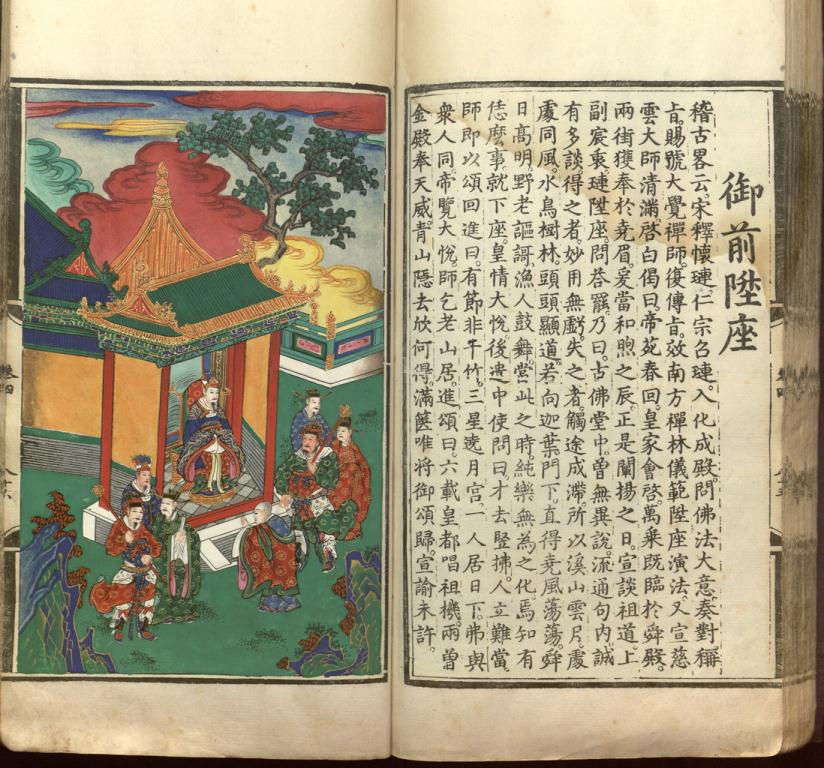 御前陞座
稽古畧云宋釋懷璉仁宗召璉入化成殿問佛法大意奏對稱
旨賜號大覺禪師後傳旨效南方禪林儀範陞座演法又宣慈
雲大師清滿啓白偈曰帝苑春回皇家會啓萬乗既臨於舜殿
兩街獲奉於堯眉爰當和煦之辰正是闡揚之日宣談祖道上
副宸衷璉陞座問荅罷乃曰古佛堂中曾無異說流通句內誠
有多談得之者妙用無虧失之者觸途成滯所以溪山雲月處
處同風水鳥樹林頭頭顯道若向迦葉門下直得堯風蕩蕩舜
日高明野老謳謌漁人鼓舞當此之時純樂無為之化焉知有
恁麼事就下座皇情大悅後遣中使問曰才去竪拂人立難當
師即以頌回進曰有節非干竹三星遶月宮一人居日下弗與
衆人同帝覽大悅師乞老山居進頌曰六載皇都唱祖機兩曾
金殿奉天威青山隱去欣何得滿篋唯將御頌歸宣諭未許
卷四